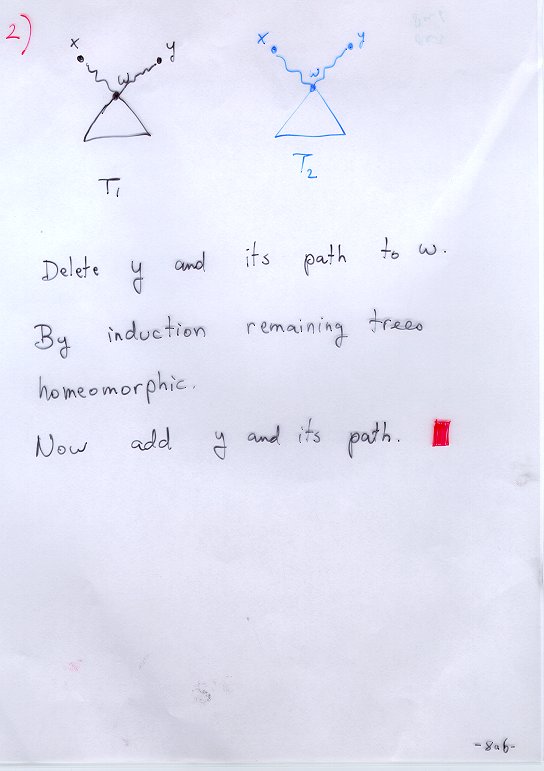 2)
x y x y
w w
T1 T2
Delete y and its path to w.
By induction remaining trees
homeomorphic.
Now add y and its path.